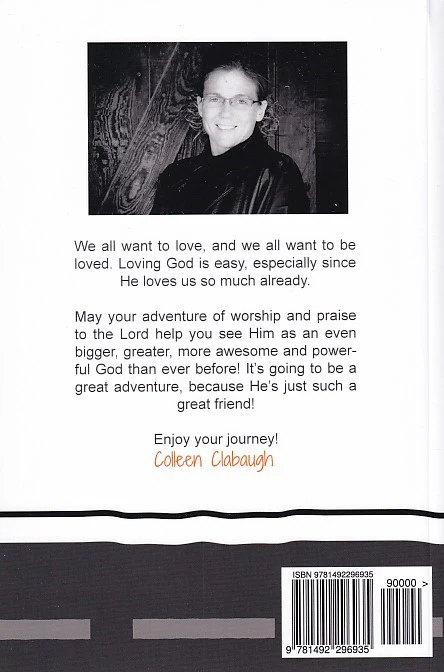 We all want to love, and we all want to be
loved. Loving God is easy, especially since
He loves us so much already.
May your adventure of worship and praise
to the Lord help you see Him as an even
bigger, greater, more awesome and power-
ful God than ever before! It's going to be a
great adventure, because He's just such a
great friend!
Enjoy your journey!
Colleen Clabaugh
ISBN 9781492296935
90000 >
9 781492 296935